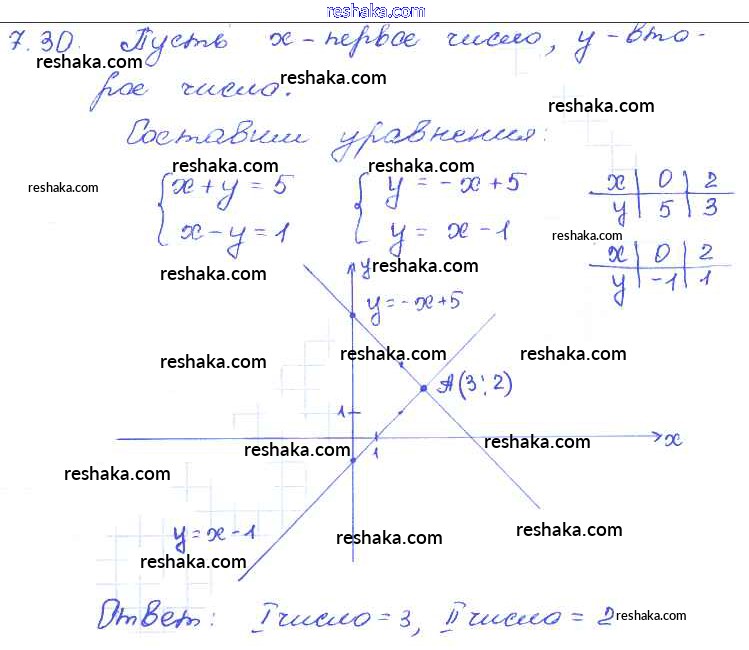 reshaka.com
7.30. Пусть x - первое число, y - вто-
reshaka.com reshaka.com reshaka.com
рое число.
Составим уравнения:
reshaka.com reshaka.com
reshaka.com
x + y = 5 y = -x + 5 x 0 2
x - y = 1 y = x - 1 y 5 3
reshaka.com
x 0 2
y -1 1
reshaka.com reshaka.com
y
y = -x + 5
reshaka.com reshaka.com reshaka.com
A(3; 2)
1
x
1
reshaka.com reshaka.com
reshaka.com
y = x - 1
reshaka.com reshaka.com reshaka.com
Ответ: I число = 3, II число = 2
reshaka.com